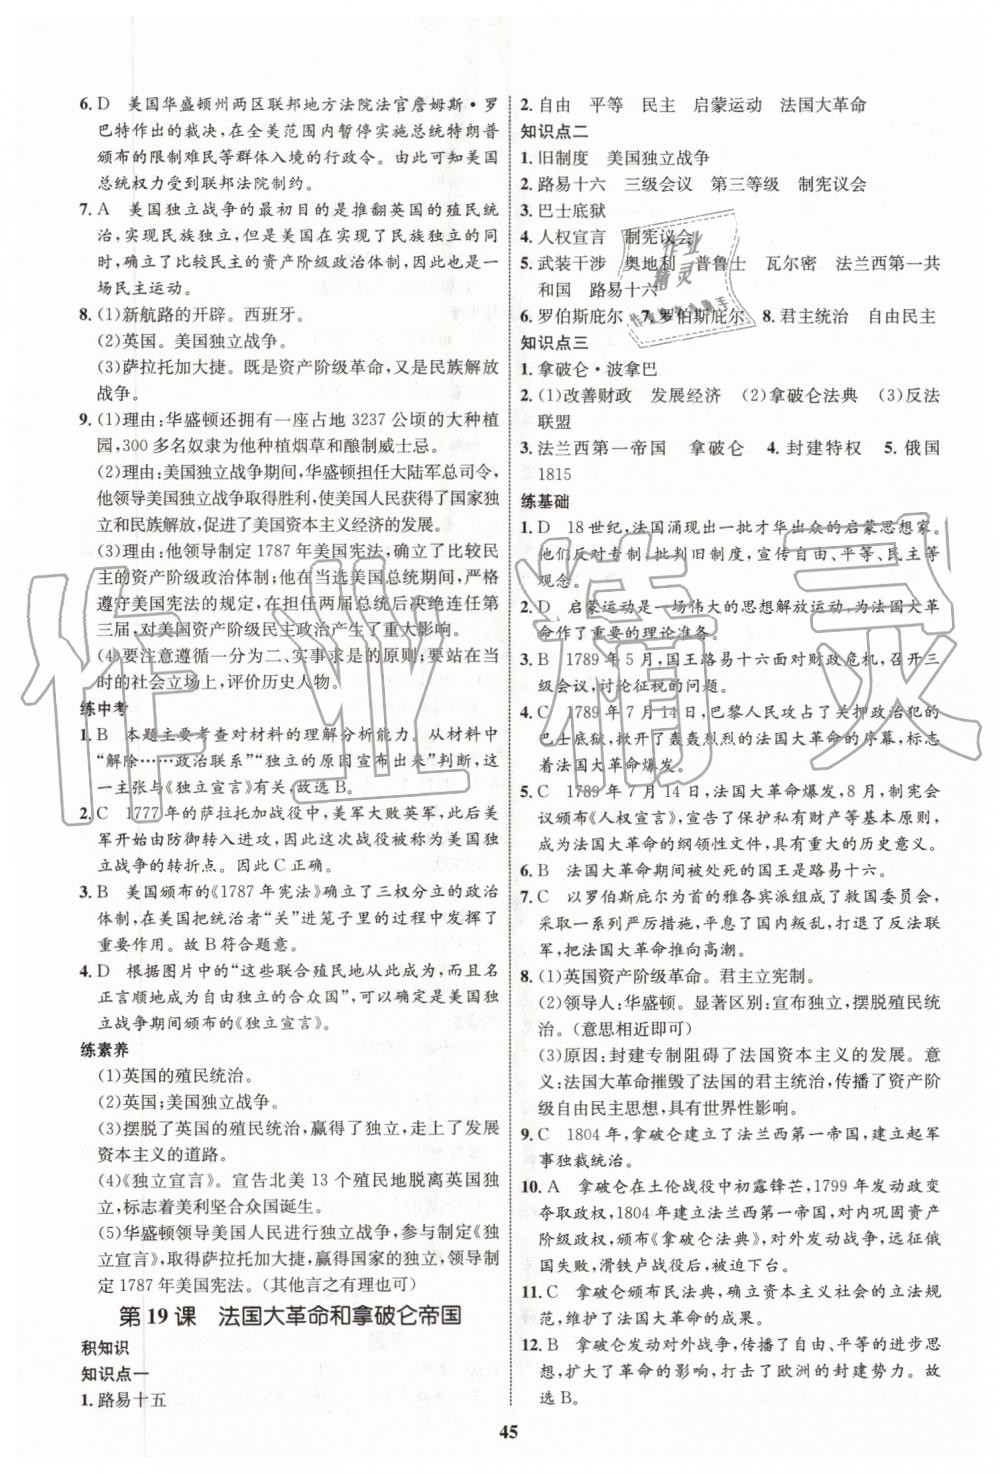 6. D　美国华盛顿州西区联邦地方法院法官詹姆斯·罗
巴特作出的裁决,在全美范围内暂停实施总统特朗普
颁布的限制难民等群体入境的行政令。由此可知美国
总统权力受到联邦法院制约。
7. A　美国独立战争的最初目的是推翻英国的殖民统
治,实现民族独立,但是美国在实现了民族独立的同
时,确立了比较民主的资产阶级政治体制,因此也是一
场民主运动。
8. (1)新航路的开辟。西班牙。
(2)英国。美国独立战争。
(3)萨拉托加大捷。既是资产阶级革命,又是民族解放
战争。
9. (1)理由:华盛顿还拥有一座占地 3237 公顷的大种植
园,300 多名奴隶为他种植烟草和酿制威士忌。
(2)理由:美国独立战争期间,华盛顿担任大陆军总司令,
他领导美国独立战争取得胜利,使美国人民获得了国家独
立和民族解放,促进了美国资本主义经济的发展。
(3)理由:他领导制定 1787 年美国宪法,确立了比较民
主的资产阶级政治体制;他在当选美国总统期间,严格
遵守美国宪法的规定,在担任两届总统后决绝连任第
三届,对美国资产阶级民主政治产生了重大影响。
(4)要注意遵循一分为二、实事求是的原则;要站在当
时的社会立场上,评价历史人物。
练中考
1. B　本题主要考查对材料的理解分析能力。从材料中
“解除……政治联系”“独立的原因宣布出来”判断,这
一主张与《独立宣言》有关,故选 B。
2. C　1777 年的萨拉托加战役中,美军大败英军,此后美
军开始由防御转入进攻,因此这次战役被称为美国独
立战争的转折点。因此 C 正确。
3. B　美国颁布的《1787 年宪法》确立了三权分立的政治
体制,在美国把统治者“关”进笼子里的过程中发挥了
重要作用。故 B 符合题意。
4. D　根据图片中的“这些联合殖民地从此成为,而且名
正言顺地成为自由独立的合众国”,可以确定是美国独
立战争期间颁布的《独立宣言》。
练素养
(1)英国的殖民统治。
(2)英国;美国独立战争。
(3)摆脱了英国的殖民统治,赢得了独立,走上了发展
资本主义的道路。
(4)《独立宣言》。宣告北美 13 个殖民地脱离英国独
立,标志着美利坚合众国诞生。
(5)华盛顿领导美国人民进行独立战争,参与制定《独
立宣言》,取得萨拉托加大捷,赢得国家的独立,领导制
定 1787 年美国宪法。(其他言之有理也可)
第 19 课　法国大革命和拿破仑帝国
积知识
知识点一
1. 路易十五
2. 自由　平等　民主　启蒙运动　法国大革命
知识点二
1. 旧制度　美国独立战争
2. 路易十六　三级会议　第三等级　制宪议会
3. 巴士底狱
4. 人权宣言　制宪议会
5. 武装干涉　奥地利　普鲁士　瓦尔密　法兰西第一共
和国　路易十六
6. 罗伯斯庇尔　7. 罗伯斯庇尔　8. 君主统治　自由民主
知识点三
1. 拿破仑·波拿巴
2. (1)改善财政　发展经济　(2)拿破仑法典　(3)反法
联盟
3. 法兰西第一帝国　拿破仑　4. 封建特权　5. 俄国
1815
练基础
1. D　18 世纪,法国涌现出一批才华出众的启蒙思想家。
他们反对专制,批判旧制度,宣传自由、平等、民主等
观念。
2. D　启蒙运动是一场伟大的思想解放运动,为法国大革
命作了重要的理论准备。
3. B　1789 年 5 月,国王路易十六面对财政危机,召开三
级会议,讨论征税的问题。
4. C　1789 年 7 月 14 日,巴黎人民攻占了关押政治犯的
巴士底狱,掀开了轰轰烈烈的法国大革命的序幕,标志
着法国大革命爆发。
5. C　1789 年 7 月 14 日,法国大革命爆发,8 月,制宪会
议颁布《人权宣言》,宣告了保护私有财产等基本原则,
成为法国大革命的纲领性文件,具有重大的历史意义。
6. B　法国大革命期间被处死的国王是路易十六。
7. C　以罗伯斯庇尔为首的雅各宾派组成了救国委员会,
采取一系列严厉措施,平息了国内叛乱,打退了反法联
军,把法国大革命推向高潮。
8. (1)英国资产阶级革命。君主立宪制。
(2)领导人:华盛顿。显著区别:宣布独立,摆脱殖民统
治。(意思相近即可)
(3)原因:封建专制阻碍了法国资本主义的发展。意
义:法国大革命摧毁了法国的君主统治,传播了资产阶
级自由民主思想,具有世界性影响。
9. C　1804 年,拿破仑建立了法兰西第一帝国,建立起军
事独裁统治。
10. A　拿破仑在土伦战役中初露锋芒,1799 年发动政变
夺取政权,1804 年建立法兰西第一帝国,对内巩固资产
阶级政权,颁布《拿破仑法典》,对外发动战争,远征俄
国失败,滑铁卢战役后,被迫下台。
11. C　拿破仑颁布民法典,确立资本主义社会的立法规
范,维护了法国大革命的成果。
12. B　拿破仑发动对外战争,传播了自由、平等的进步思
想,扩大了革命的影响,打击了欧洲的封建势力。故
选 B。
45
作业精灵
作业精灵